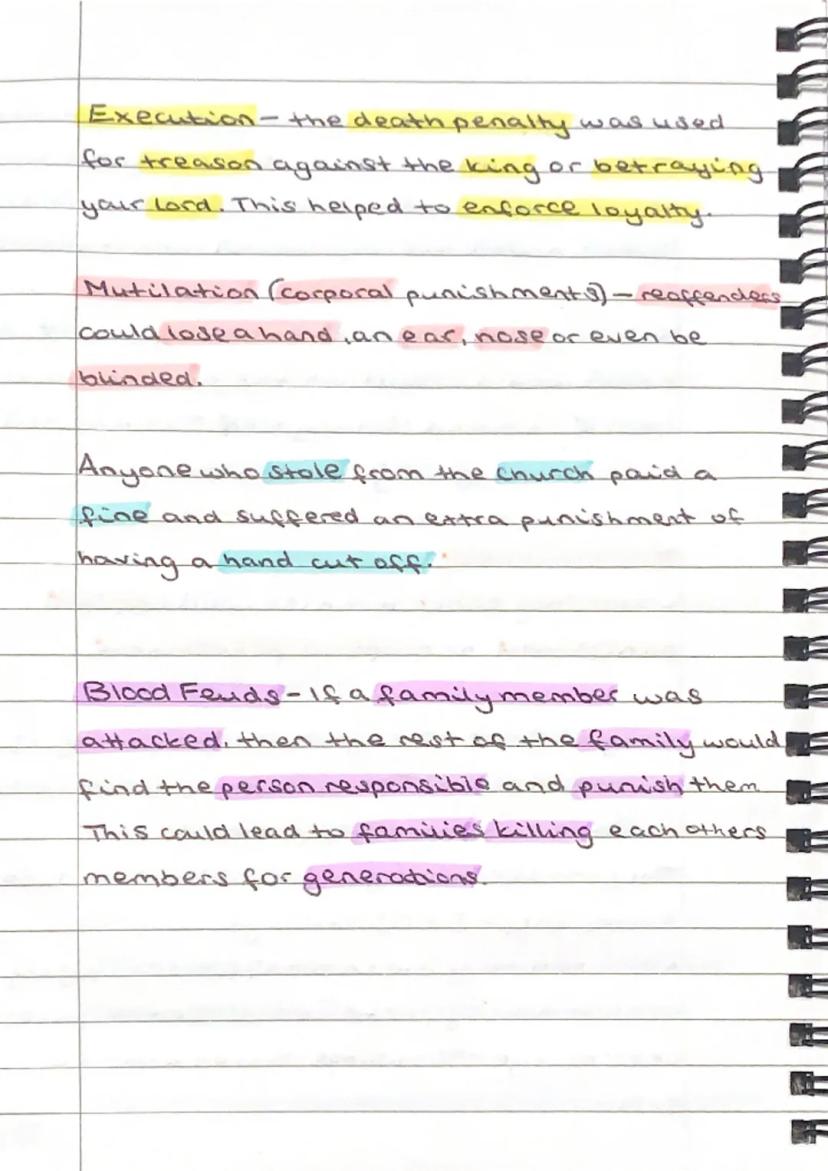 Execution - the death penalty was used
for treason against the king or betraying
your lord. This helped to enforce loyalty.
Mutilation (corporal punishments) - reoffenders
could lose a hand, an ear, nose or even be
blinded.
Anyone who stole from the church paid a
fine and suffered an extra punishment of
having a hand cut off.
Blood Feuds - If a family member was
attacked, then the rest of the family would
find the person responsible and punish them
This could lead to families killing each others
members for generations.